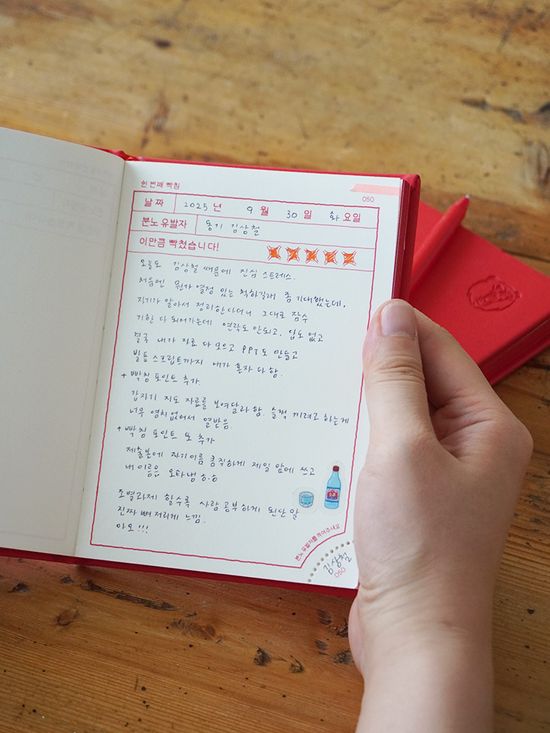 한 번째 빡침
050
날 짜 2025 년 9 월 30 일 화 요일
분노 유발자 동기 김상철
이만큼 빡쳤습니다!
오늘도 김상철 때문에 진심 스트레스.
처음엔 뭔가 열정 있는 척하길래 좀 기대했는데,
자기가 알아서 정리한다더니 그대로 잠수
기한 다 되어가는데 연락도 안되고, 답도 없고
결국 내가 자료 다 모으고 PPT도 만들고
발표 스크립트까지 내가 혼자 다 함.
+ 빡침 포인트 추가
갑자기 지도 자료를 보여달라 함 슬쩍 끼려고 하는게
너무 염치없어서 열받음
+ 빡침 포인트 또 추가
제출본에 자기이름 큼직하게 제일 앞에 쓰고
내 이름은 오타냄
조별과제 할수록 사람 공부하게 된단 말
진짜 뼈저리게 느낌.
아오 !!!
분노 유발자를 찢어주세요
김상철
050